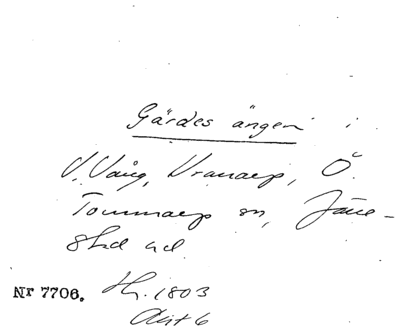 Gärdes ängen i
V. Vång, Vranarp, Ö.
Tommarp sn, Järre-
stad hd
Nr 7706. Hs. 1803
Akt 6